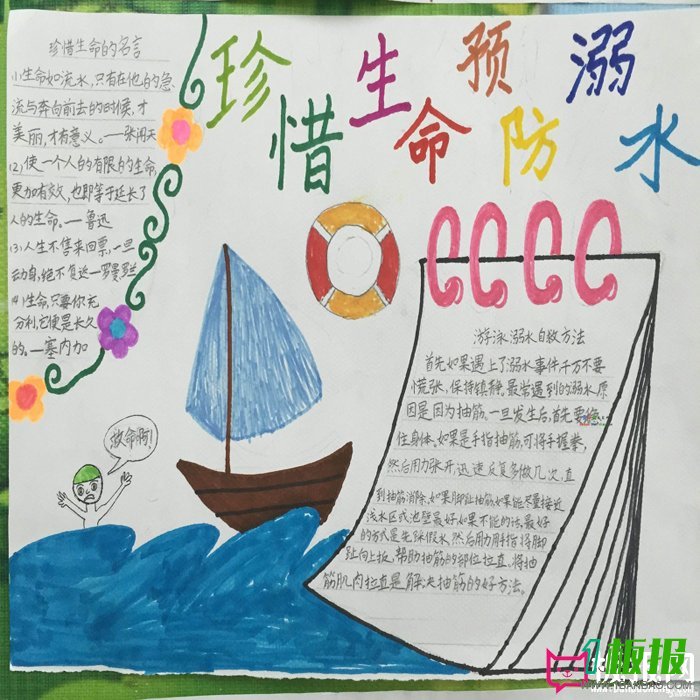 珍惜生命预防溺水
珍惜生命的名言
(1)生命如流水,只有在他的急
流与奔向前去的时候,才
美丽,才有意义。——张闻天
(2)使一个人的有限的生命,
更加有效,也即等于延长了
人的生命。——鲁迅
(3)人生不售来回票,一旦
动身,绝不复返—罗曼罗兰
(4)生命,只要你充
分利,它便是长久
的。—塞内加
救命啊!
游泳溺水自救方法
首先如果遇上了溺水事件千万不要
慌张,保持镇静。最常遇到的溺水原
因是因为抽筋,一旦发生后,首先要
住身体,如果是手指抽筋,可将手握拳,
然后用力张开,迅速反复多做几次,直
到抽筋消除,如果脚趾抽筋,如果能尽量接近
浅水区或池壁最好如果不能的话,最好
的方式是先踩假水,然后用力用手指将脚
趾向上扳,帮助抽筋的部位拉直,将抽
筋肌肉拉直是解决抽筋的好方法。
1板报